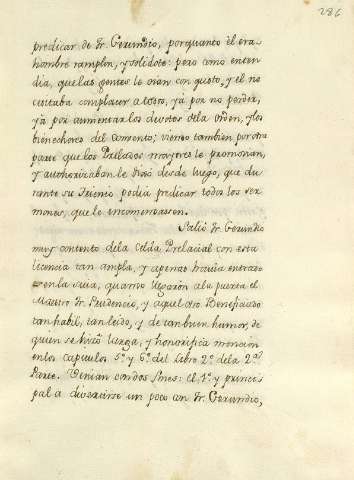 286
predicar de Fr. Gerundio, porquanto èl era
hombre ramplon, y solidote: pero como enten
dia, que las gentes le oian con gusto, y el no
custaba complacer a todos, ya por no perder,
ya por aumentar los devotos dela Orden, y los
bienechores del Convento; viendo tambien por otra
parte que los Prelados mayores le promovian,
y authorizaban le dixo desde luego, que du
rante su trienio podia predicar todos los ser
mones, que le encomendassen.
Saliò Fr. Gerundio
muy contento dela Celda Prelacial con esta
licencia tan ampla, y apenas havia entrado
en la suia, quando llegaron ala puerta el
Maestro Fr. Prudencio, y aquel otro Beneficiado
tan habil, tan leido, y de tan buen humor, de
quien se hizo larga, y honorifica mencion
enlos capitulos 5º y 6º del Libro 2º dela 2ª
Parte. Venian con dos fines: el 1º y princi-
pal a divertirse un poco con Fr. Gerundio,